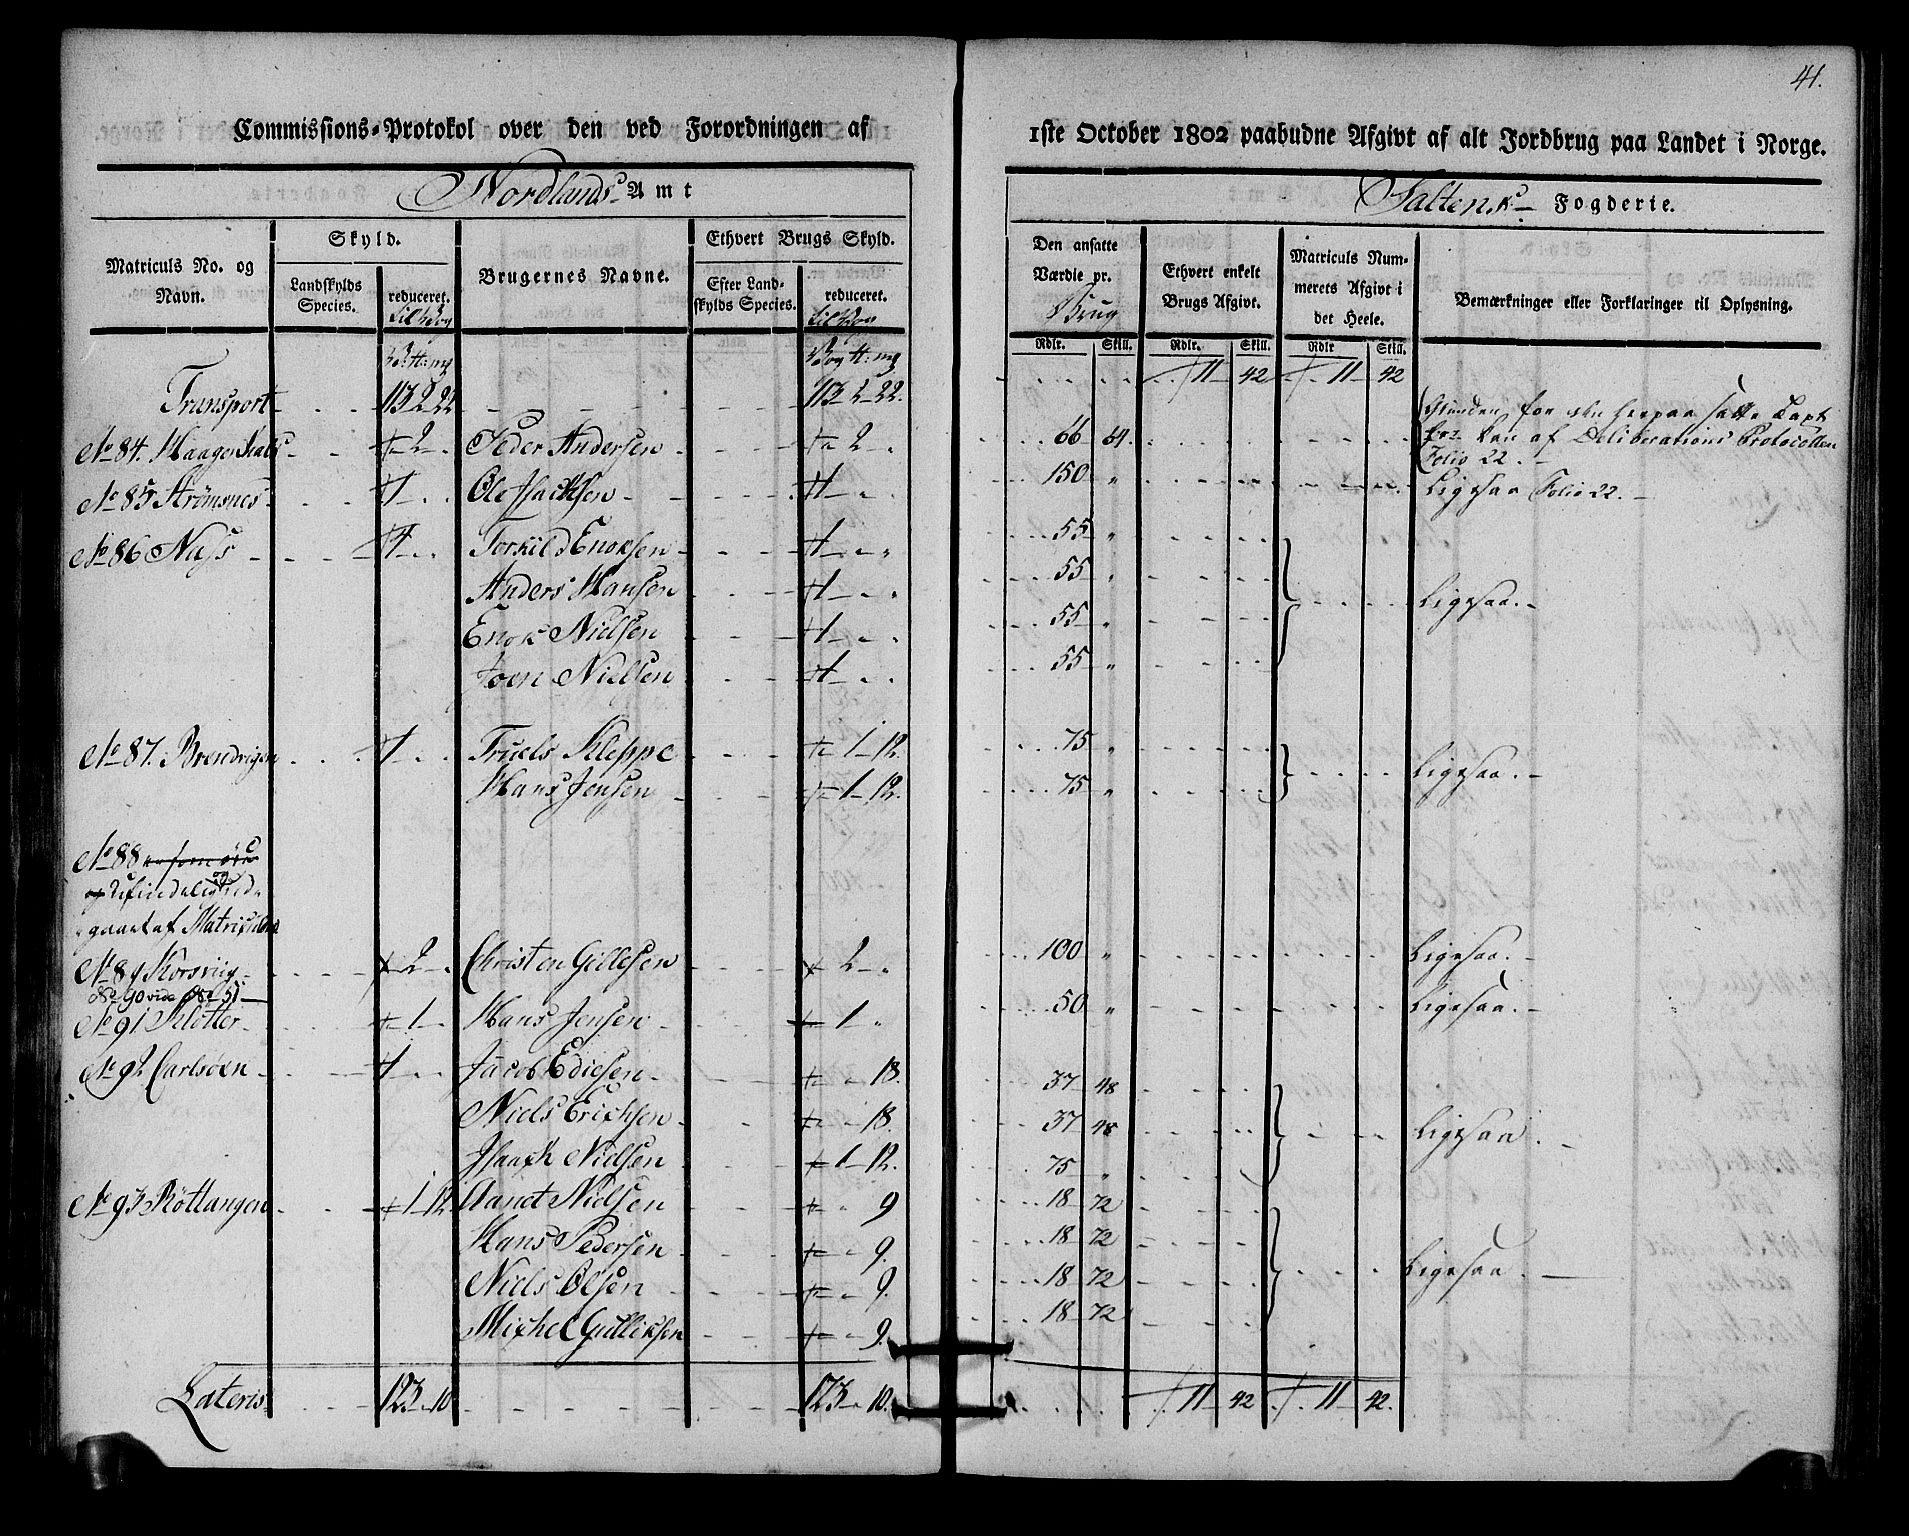 41.
Commissions-Protokol over den ved Forordningen af 1ste October 1802 paabudne Afgivt af alt Jordbrug paa Landet i Norge.
Nordlands Amt
Saltens Fogderie.
Matriculs No. og Navn.
Skyld.
Landskylds Species.
reduceret.
Brugernes Navne.
Ethvert Brugs Skyld.
Efter Landskylds Species.
reduceret.
Den ansatte Værdie pr. Brug
Ethvert enkelt Brugs Afgivt.
Matriculs Nummerets Afgivt i det Heele.
Bemærkninger eller Forklaringer til Oplysning.
Rdlr. Skill. Rdlr. Skill. Rdlr Skill.
Transport 113 2 22 113 2 22. 11 42 11 42
No 84. 2 Peder Andersen 2 66 64.
af Deliberations Protocollen
Folio 22.
No 85 Strømsnes Ole Isachsen 150 " Ligesaa Folio 22.
No 86 Næss Torkild Enoksen 55 "
Anders Hansen 55 " Ligesaa.
Enok Nielsen 55 "
Joen Nielsen 55 "
No 87. Truels Kleppe 1 12. 75 "
Hans Jensen 1 12. 75 " Ligesaa.
No 88
gaaet af Matriculen
No 89 Korsviig 2 Christen Gillesen 2 100 " Ligesaa.
No 90 vide No 51
No 91 Kløtter 1 Hans Jensen 1 50 " Ligesaa.
No 92 Carlsøen Jacob Ediesen 18. 37 48
Niels Erichsen 18. 37 48 Ligesaa.
Isaach Nielsen 1 12. 75 "
No 93 Røttangen 1 12. Aanet Nielsen 9 18 72
Hans Pedersen 9. 18 72
Niels Olsen 9. 18 72 Ligesaa.
Michel Gulliksen 9. 18 72
Lateris 123 10 123 10. 11 42 11 42.